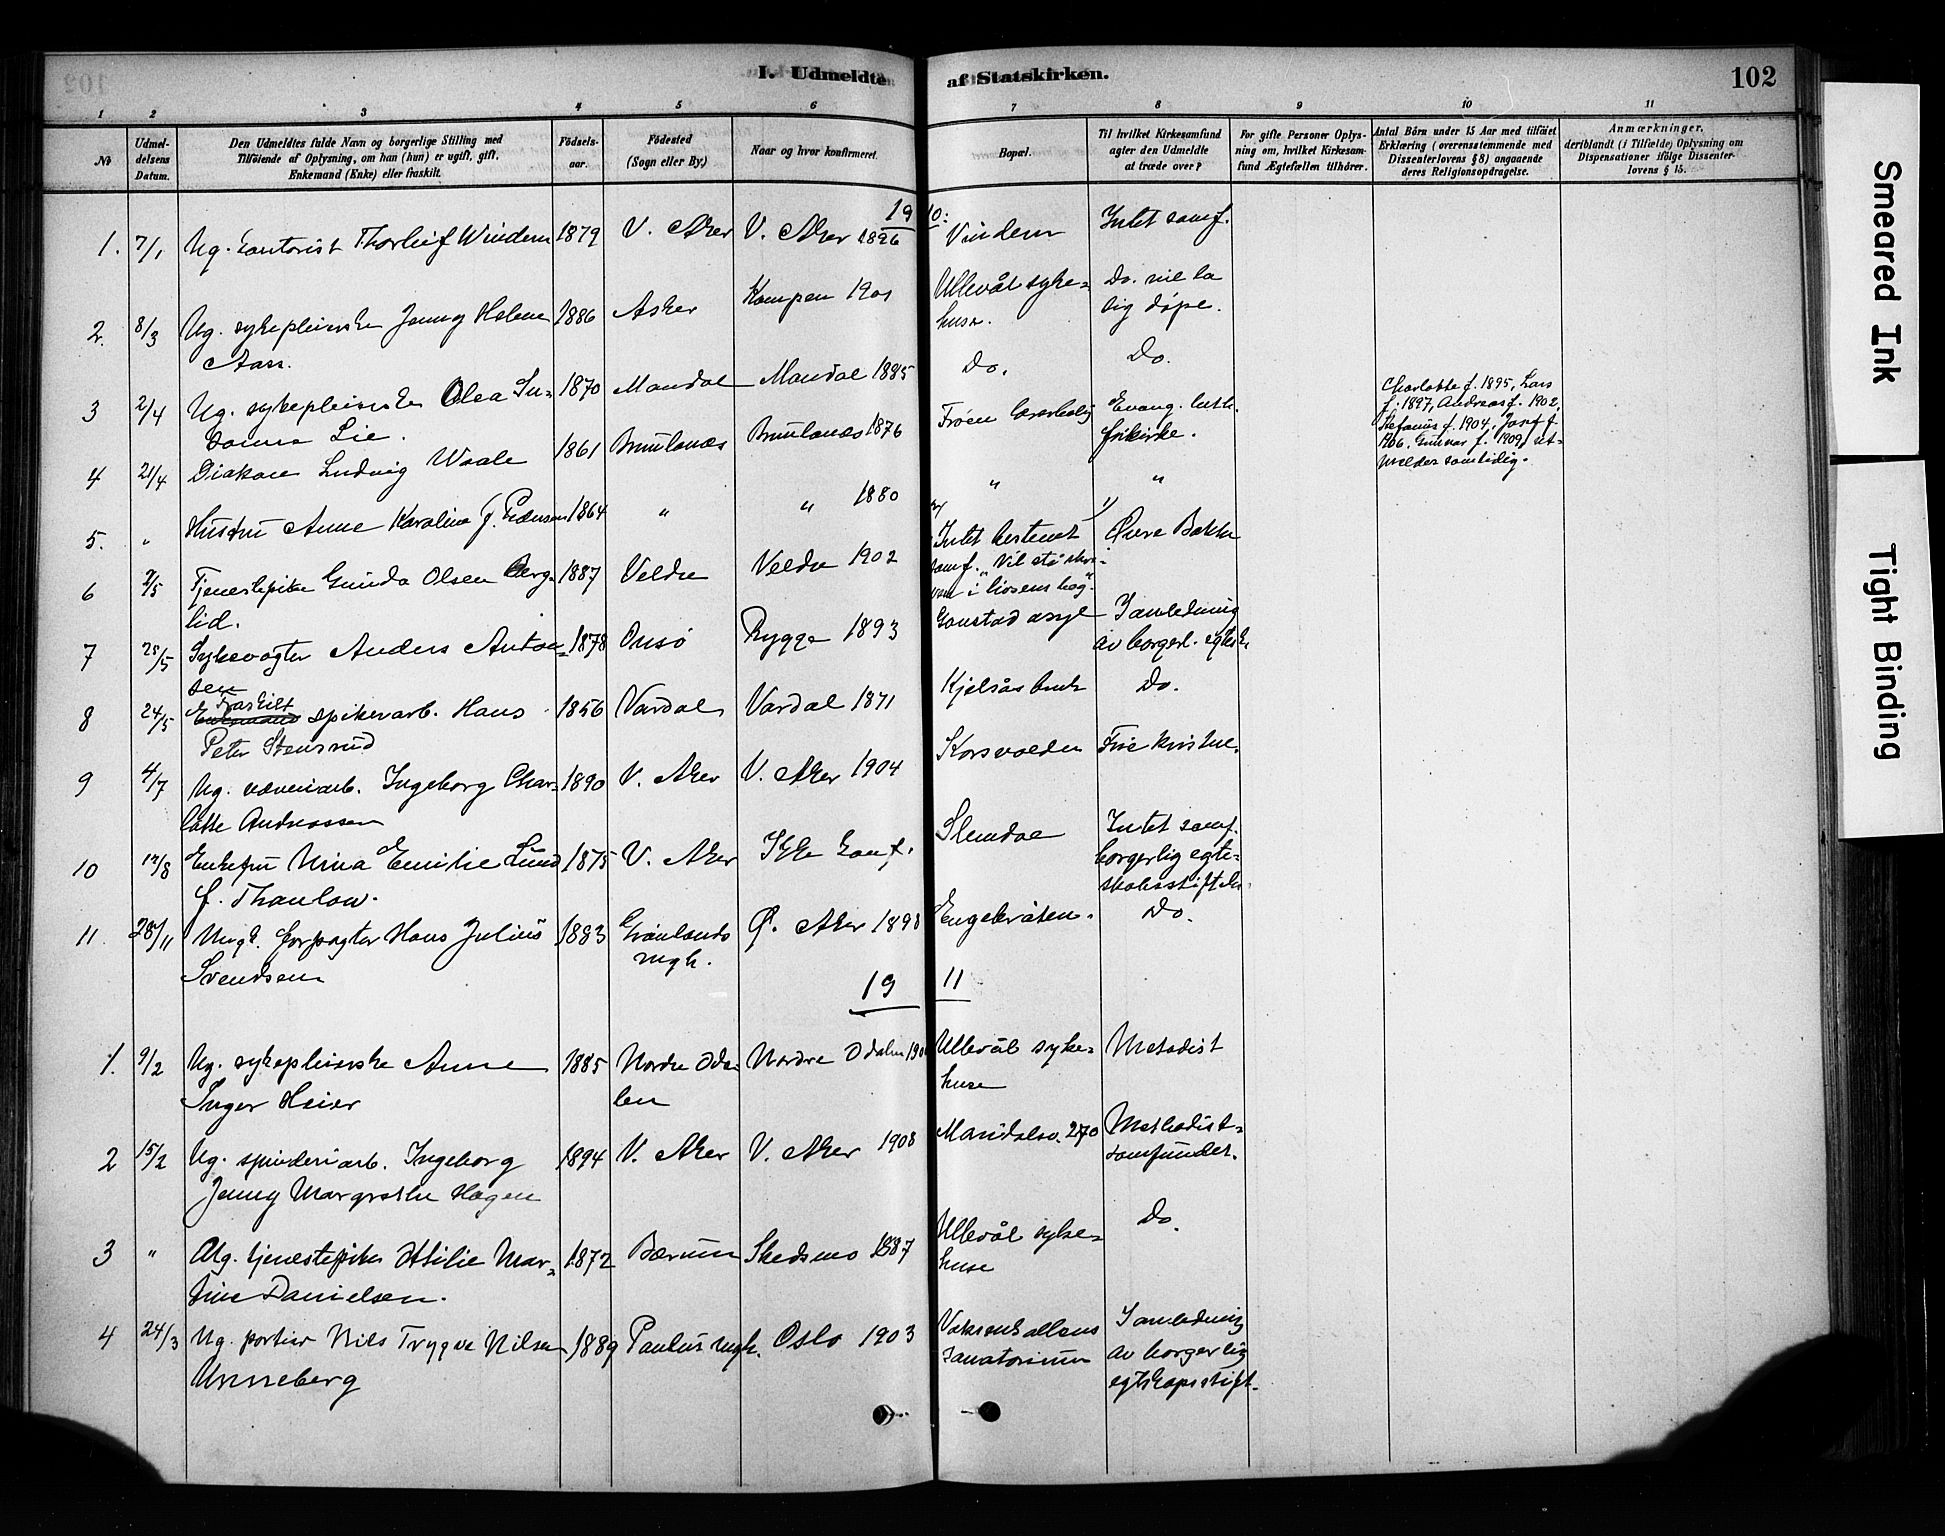 I. Udmeldte af Statskirken.
102
1 2 3 4 5 6 7 8 9 10 11
No
Udmel-
delsens
Datum.
Den Udmeldtes fulde Navn og borgerlige Stilling med
Tilföiende af Oplysning, om han (hun) er ugift, gift,
Enkemand (Enke) eller fraskilt.
Födsels-
aar.
Födested
(Sogn eller By.)
Naar og hvor konfirmeret.
Bopæl.
Til hvilket Kirkesamfund
agter den Udmeldte
at træde over?
For gifte Personer Oplys-
ning om, hvilket Kirkesam-
fund Ægtefællen tilhörer.
Antal Börn under 15 Aar med tilföiet
Erklæring (overensstemmende med
Dissenterlovens § 8) angaaende
deres Religionsopdragelse.
Anmærkninger,
deriblandt (i Tilfælde) Oplysning om
Dispensationer ifölge Dissenter-
lovens § 15.
1910:
1. 7/1 Ug. kontorist Thorleif Windern 1879 V. Aker V. Aker 1896 Vindern Intet samf.
2. 8/3 Ug. sykepleierske Jenny Helene 1886 Asker Kampen 1901 Ullevål syke-
Aass. hus. Do. vil la
sig døpe.
3 2/4 Ug. sykepleierske Olea Su- 1870 Mandal Mandal 1885 Do. Do.
sanna Lie.
4 21/4 Diakon Ludvig Waale 1861 Brunlanæs Brunlanæs 1876 Frøen Evang. luth.
frikirke.
Charlotte f. 1895, Lars
f. 1897, Andreas f. 1902,
Stefanus f. 1904, Josef f.
1906, Gunvor f. 1909, ut-
meldes samtidig.
5. " Hustru Anne Karoline f. Pedersen 1864 " " 1880 " "
6 2/5 Tjenestepike Gunda Olsen Berg- 1887 Veldre Veldre 1902 Intet bestemt
lid. samf. "Vil stå skre-
vet i livsens bog". Øvre Bakke
7 25/5 Sykevogter Anders Anton- 1878 Onsø Rygge 1893 Gaustad asyl I anledning
sen av borgerl. egtsk.
8 24/5 Enkemand Fraskilt spikerarb. Hans 1856 Vardal Vardal 1871 Kjelsås bruk Do.
Peter Stensrud
9 4/7 Ug. væveriarb. Ingeborg Char- 1890 V. Aker V. Aker 1904 Korsvolden Frie kristne.
lotte Andreassen
10 12/8 Enkefru Nina Emilie Lund 1875 V. Aker Ikke konf. Slemdal Intet samf.
f. Thaulow. borgerlig egte-
skabsstiftelse.
11. 28/11 Ungk. forpagter Hans Julius 1883 Grønlands Ø. Aker 1898 Engebråten. Do.
Svendsen mgh.
1911
1. 9/2 Ug. sykepleierske Anne 1885 Nordre Oda- Nordre Odalen Ullevål syke- Metodist
Inger Heier len hus
2 15/2 Ug. spinderiarb. Ingeborg 1894 V. Aker V. Aker 1908 Maridalsv. 270 Methodist-
Jenny Margrethe Hagen samfundet.
3 " Ug. tjenestepike Otilie Mar- 1872 Bærum Skedsmo 1887 Ullevål syke- Do.
tine Danielsen. hus
4 24/3 Ug. portier Nils Trygve Nilsen 1889 Paulus mgh. Oslo 1903 Voksenkollens I anledning
Unneberg sanatorium av borgerlig
egtskapsstift.
Smeared Ink
Tight Binding